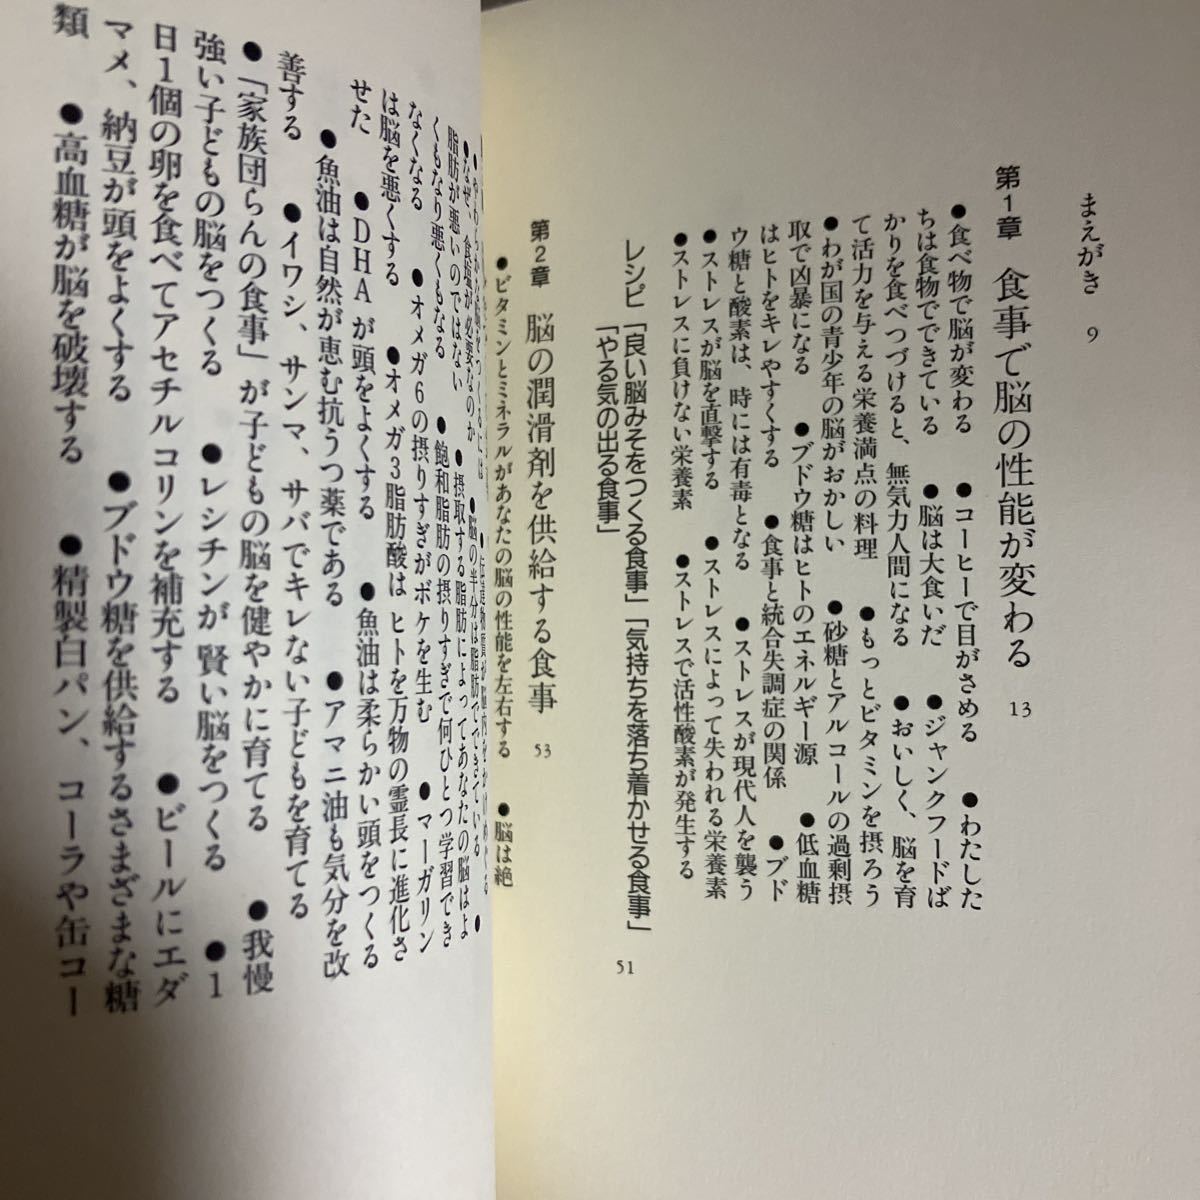 まえがき 9
第1章 食事で脳の性能が変わる 13
●食べ物で脳が変わる ●コーヒーで目がさめる ●わたした
ちは食物でできている ●脳は大食いだ ●ジャンクフードば
かりを食べつづけると、無気力人間になる ●おいしく、脳を育
て活力を与える栄養満点の料理 ●もっとビタミンを摂ろう
●わが国の青少年の脳がおかしい ●砂糖とアルコールの過剰摂
取で凶暴になる ●ブドウ糖はヒトのエネルギー源 ●低血糖
はヒトをキレやすくする ●食事と統合失調症の関係 ●ブド
ウ糖と酸素は、時には有毒となる ●ストレスが現代人を襲う
●ストレスが脳を直撃する ●ストレスによって失われる栄養素
●ストレスに負けない栄養素 ●ストレスで活性酸素が発生する
レシピ「良い脳みそをつくる食事」「気持ちを落ち着かせる食事」
「やる気の出る食事」 51
第2章 脳の潤滑剤を供給する食事 53
●ビタミンとミネラルがあなたの脳の性能を左右する ●脳は絶
●やわらかな脳をつくるには ●脳の半分は脂肪でできている ●
なぜ、食塩が必要なのか ●摂取する脂肪によってあなたの脳はよ
脂肪が悪いのではない ●飽和脂肪の摂りすぎで何ひとつ学習でき
くもなり悪くもなる
なくなる ●オメガ6の摂りすぎがボケを生む ●マーガリン
は脳を悪くする ●オメガ3脂肪酸は ヒトを万物の霊長に進化さ
せた ●DHAが頭をよくする ●魚油は柔らかい頭をつくる
●魚油は自然が恵む抗うつ薬である ●アマニ油も気分を改
善する ●イワシ、サンマ、サバでキレない子どもを育てる
●「家族団らんの食事」が子どもの脳を健やかに育てる ●我慢
強い子どもの脳をつくる ●レシチンが 賢い脳をつくる ●1
日1個の卵を食べてアセチルコリンを補充する ●ビールにエダ
マメ、納豆が頭をよくする ●ブドウ糖を供給するさまざまな糖
類 ●高血糖が脳を破壊する ●精製白パン、コーラや缶コー